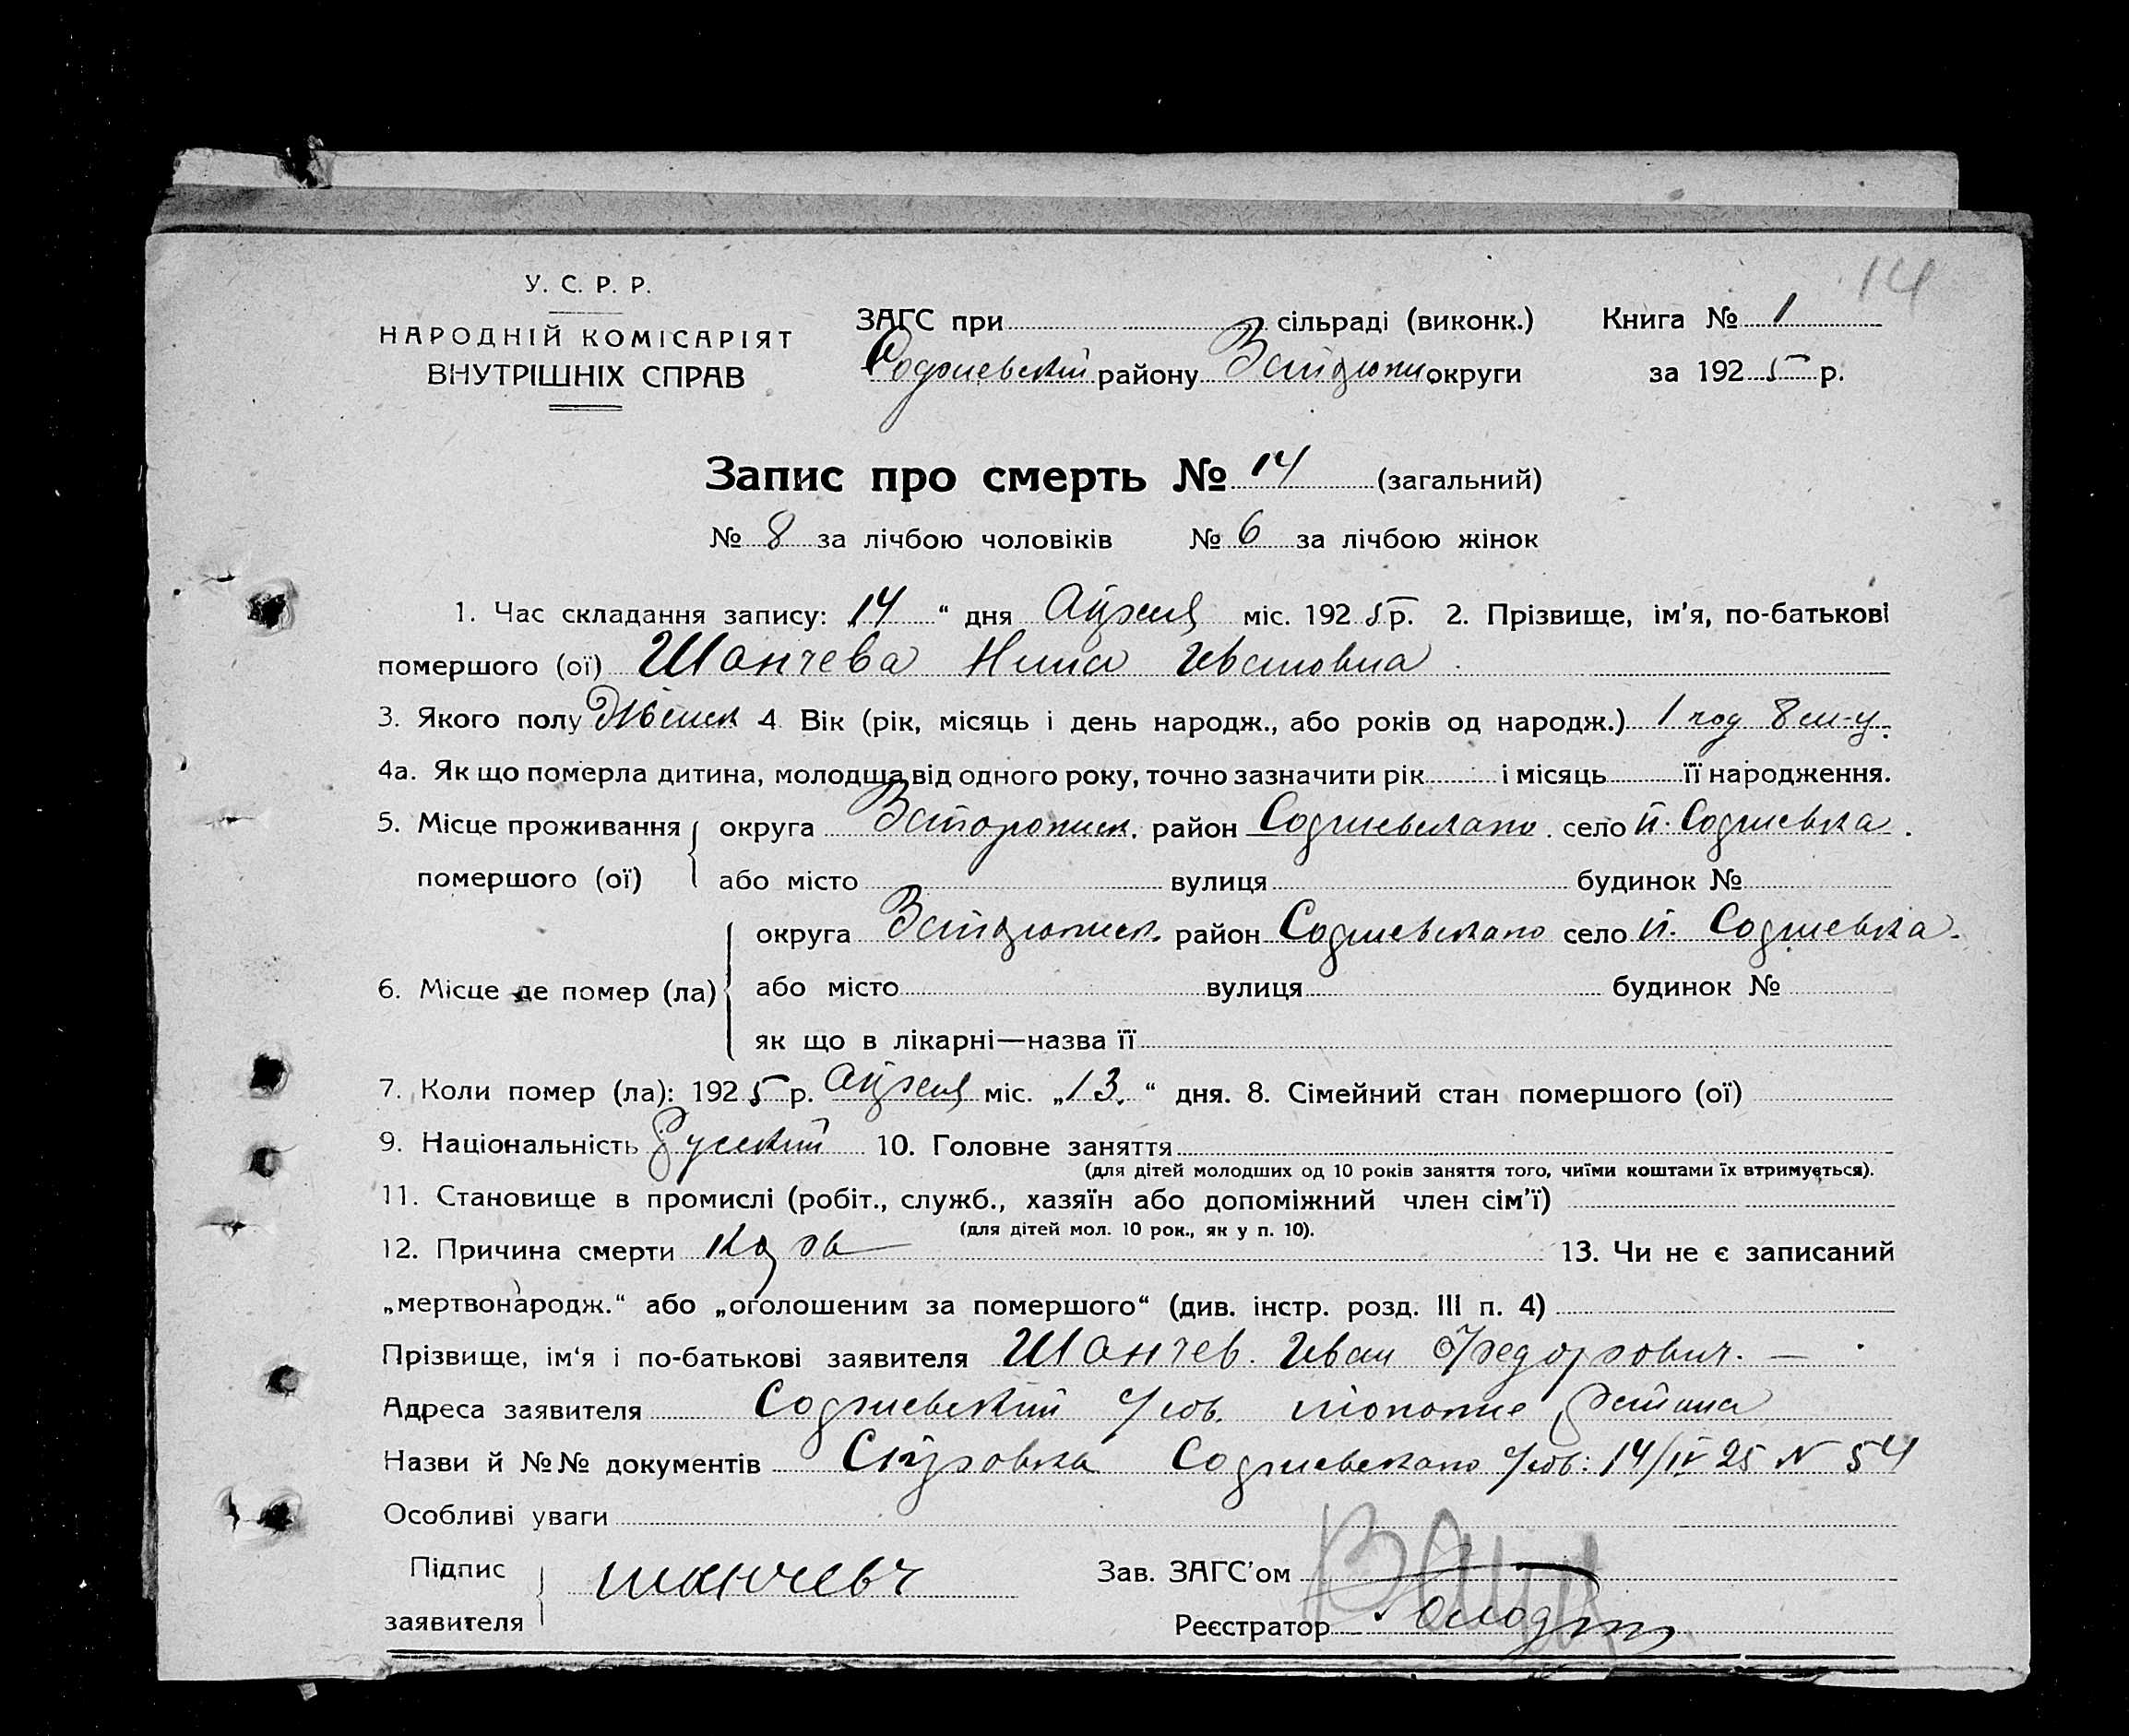 14
У. С. Р. Р.
НАРОДНІЙ КОМІСАРІЯТ
ВНУТРІШНІХ СПРАВ
ЗАГС при сільраді (виконк.)
Софиевский району Запорожс округи
Книга № 1
за 1925 р.
Запис про смерть № 14 (загальний)
№ 8 за лічбою чоловіків № 6 за лічбою жінок
1. Час складання запису: „14“ дня Апреля міс. 1925 р. 2. Прізвище, ім'я, по-батькові
помершого (ої) Шанчева Нина Ивановна
3. Якого полу Женск 4 Вік (рік, місяць і день народж., або років од народж.) 1 год 8 м-ц.
4а. Як що померла дитина, молодша від одного року, точно зазначити рік і місяць її народження.
5. Місце проживання округа Запорожск. район Софиевского село п. Софиевка.
помершого (ої) або місто вулиця будинок №
округа Запорожск. район Софиевского село п. Софиевка.
6. Місце де помер (ла) або місто вулиця будинок №
як що в лікарні—назва її
7. Коли помер (ла): 1925 р. Апреля міс. „13.“ дня. 8. Сімейний стан помершого (ої)
9. Національність Русский 10. Головне заняття
(для дітей молодших од 10 років заняття того, чиїми коштами їх втримується).
11. Становище в промислі (робіт., служб., хазяїн або допоміжний член сім'ї)
(для дітей мол. 10 рок., як у п. 10).
12. Причина смерти Корь 13. Чи не є записаний
„мертвонародж.“ або „оголошеним за помершого“ (див. інстр. розд. III п. 4)
Прізвище, ім'я і по-батькові заявителя Шанчев. Иван Федорович. —
Адреса заявителя Софиевский с/сов. того же района
Назви й №№ документів Справка Софиевского с/сов: 14/IV 25 N 54
Особливі уваги
Підпис
заявителя шанчевъ
Зав. ЗАГС'ом
Реєстратор